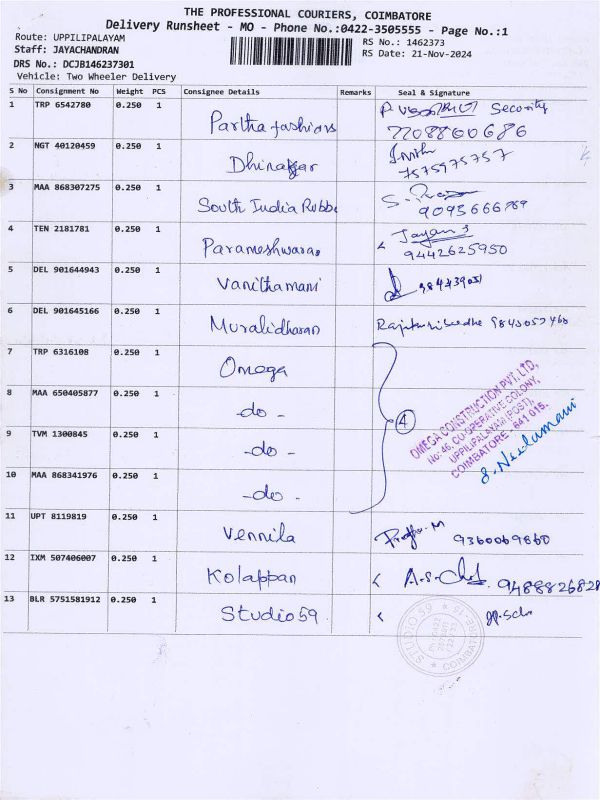 THE PROFESSIONAL COURIERS, COIMBATORE
Delivery Runsheet - MO - Phone No.:0422-3505555 - Page No.:1
Route: UPPILIPALAYAM
RS No.: 1462373
Staff: JAYACHANDRAN
RS Date: 21-Nov-2024
DRS No.: DCJB146237301
Vehicle: Two Wheeler Delivery
S No Consignment No Weight PCS Consignee Details Remarks Seal & Signature
1 TRP 6542780 0.250 1 Partha fashions Security
7708860686
2 NGT 40120459 0.250 1
7575975757
3 MAA 868307275 0.250 1 South India Rubbe
4 TEN 2181781 0.250 1 Parameshwaran Jayan
9442625950
5 DEL 901644943 0.250 1 Vanithamani
6 DEL 901645166 0.250 1 Muralidharan
7 TRP 6316108 0.250 1 Omega
8 MAA 650405877 0.250 1 -do-
9 TVM 1300845 0.250 1 -do-
10 MAA 868341976 0.250 1 -do-
4
OMEGA CONSTRUCTION PVT. LTD,
No: 46, CO-OPERATIVE COLONY,
UPPILIPALAYAM (POST),
COIMBATORE - 641 015.
S. Neelamani
11 UPT 8119819 0.250 1 Vennila 9360069860
12 IXM 507406007 0.250 1 Kolappan 9488826828
13 BLR 5751581912 0.250 1 Studio 59
STUDIO 59
COIMBATORE